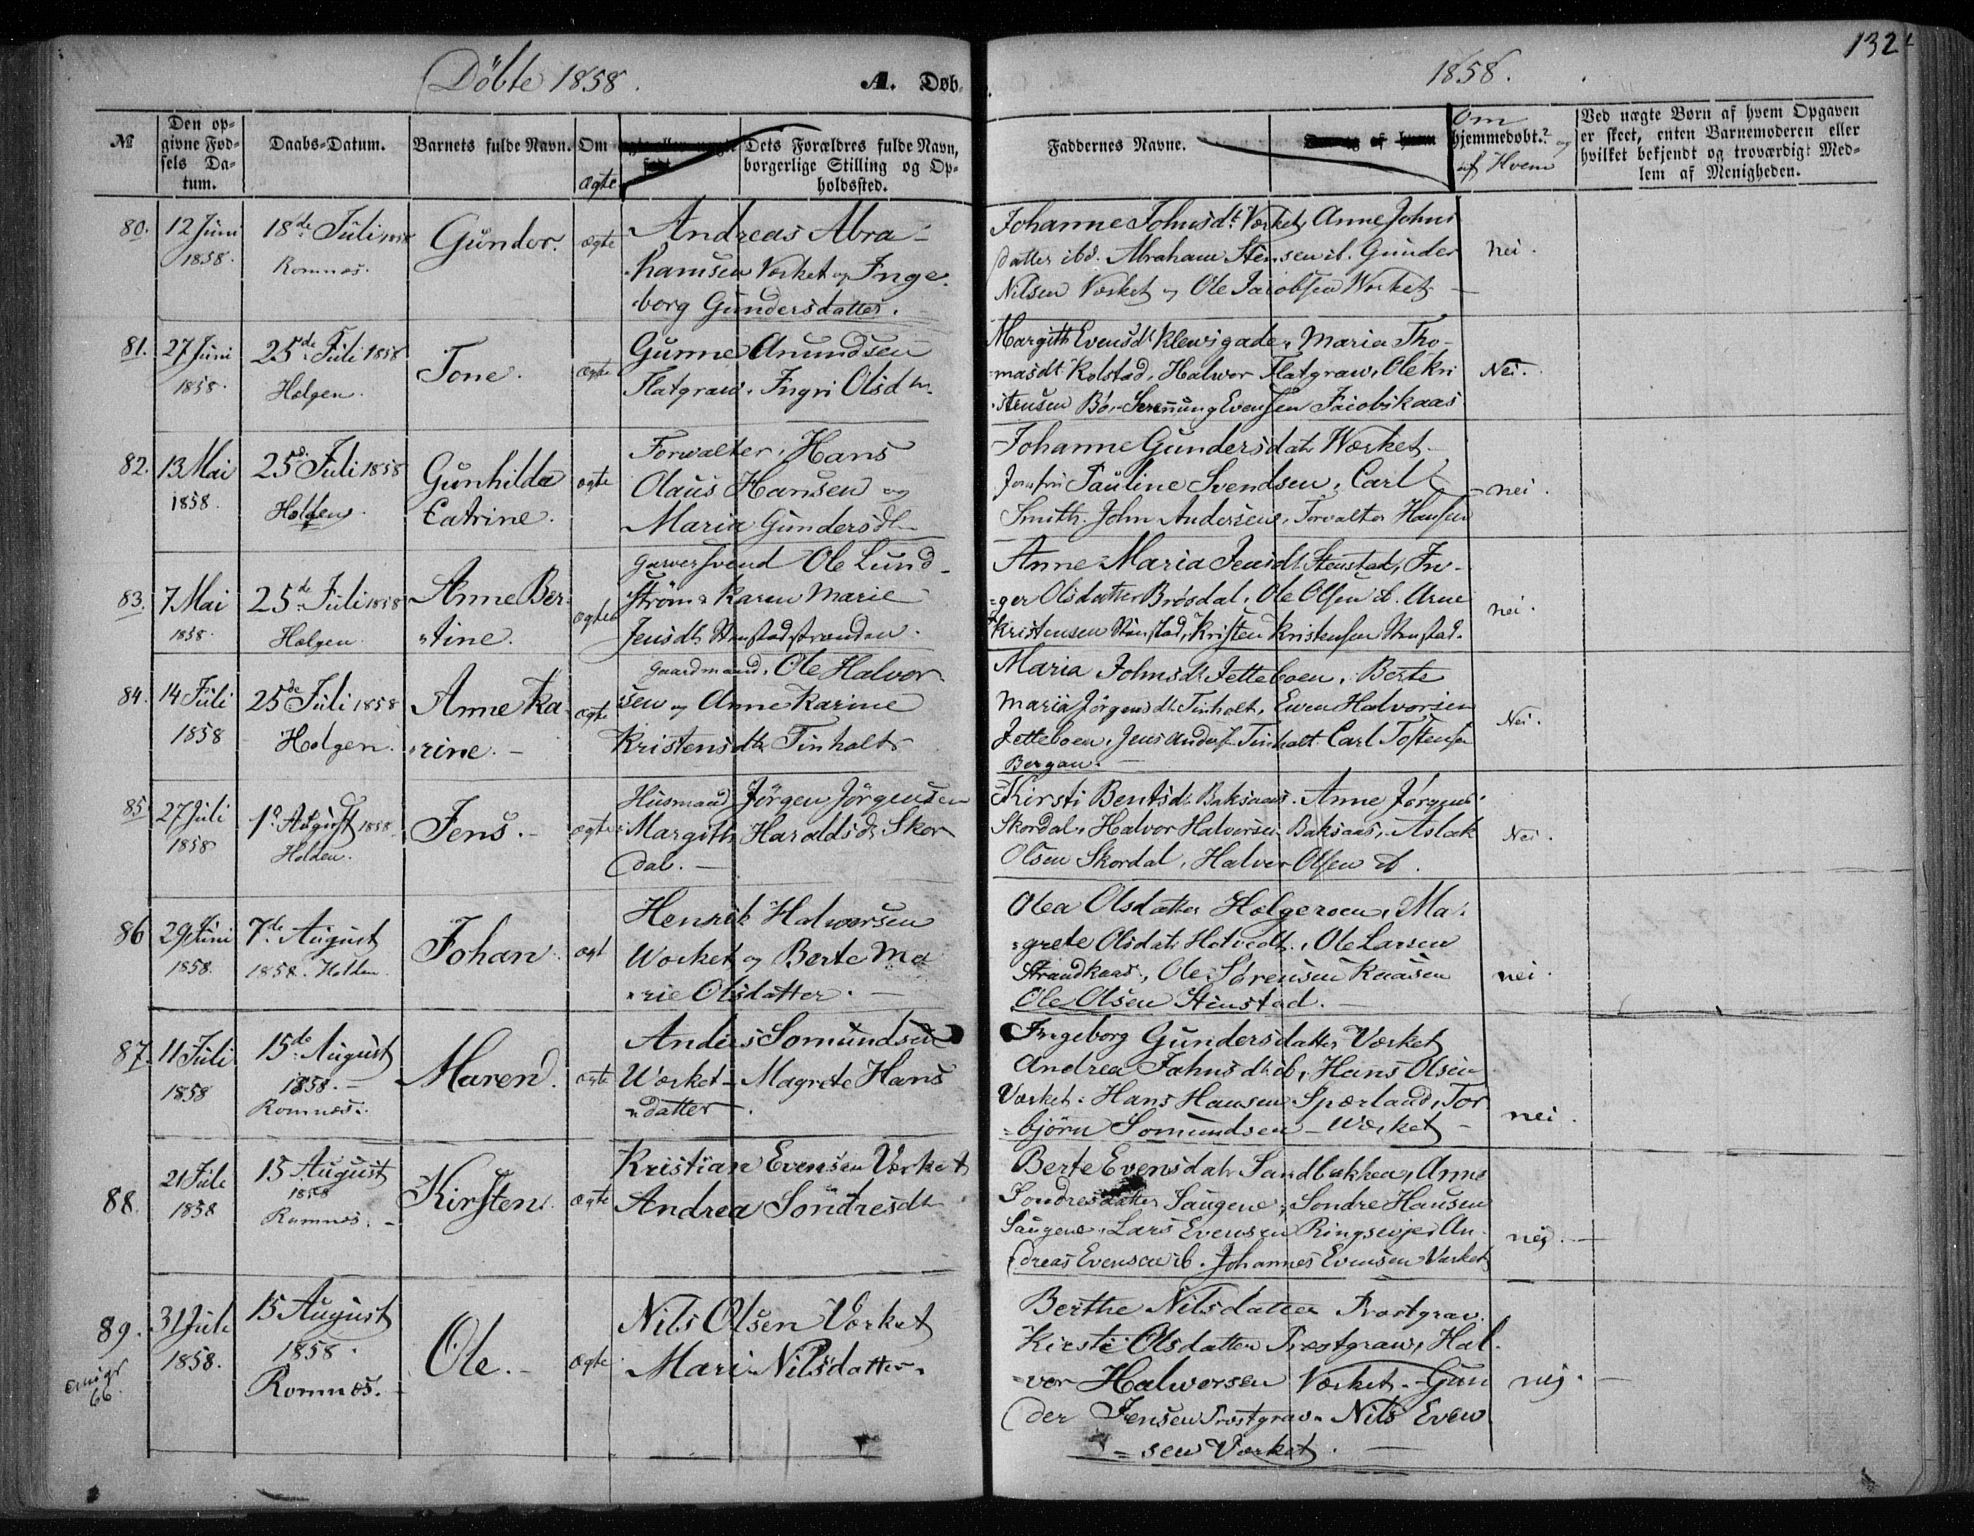 Döbte 1858.
A. Døb-
1858.
132
№
Den op-
givne Fød-
sels Da-
tum.
Daabs-Datum.
Barnets fulde Navn.
Om
ægte
Dets Forældres fulde Navn,
borgerlige Stilling og Op-
holdssted.
Faddernes Navne.
Om
hjemmedøbt? og
af Hvem
Ved uægte Børn af hvem Opgaven
er skeet, enten Barnemoderen eller
hvilket bekjendt og troværdigt Med-
lem af Menigheden.
80.
12 Juni
1858.
18de Juli 1858
Romnæs.
Gunder.
ægte
Andreas Abra-
hamsen Værket og Inge-
borg Gundersdatter.
Johanne Johnsdt. Værket, Anne Johns
datter ibd. Abraham Stensen ib. Gunder
Nilsen Værket og Ole Jacobsen Værket
nei.
81.
27 Juni
1858.
25de Juli 1858
Holgen.
Tone.
ægte
Gunne Amundsen
Flatgraw. Ingri Olsdtr.
Margith Evensdt. Klevsgade, Maria Tho-
masdt Kolstad, Halvor Flatgraw, Ole Kri
stensen Bö, Evensen Jacobskaas
Nei.
82.
13 Mai
1858.
25de Juli 1858
Holden.
Gunhilda
Catrine.
ægte
Forvalter, Hans
Olaus Hansen og
Maria Gundersdtr
Johanne Gundersdatr Værket
Jomfru Pauline Svendsen, Carl
Smith. John Andersen, Forvalter Hansen
nei.
83.
7 Mai
1858.
25de Juli 1858
Holgen
Anne Ber-
tine.
ægte
Garversvend Ole Lund-
ström, Karen Marie
Jensdtr Stenstadstranden.
Anne Maria Jensdt. Stenstad, In-
ger Olsdatter Brösdal, Ole Olsen ib. Arne
Kristensen Stenstad, Kristen Kristensen Stenstad.
nei.
84.
14 Juli
1858
25de Juli 1858
Holgen.
Anne Ka-
rine.
ægte
Gaardmand, Ole Halvor
sen og Anne Karine
Kristensdtr Tinholt
Maria Johnsdt Jetteboen, Berte
Maria Jörgensdtr Tinholt, Even Halvorsen
Jetteboen, Jens Anders. Tinholt. Carl Tostensen
Bergan.
Nei.
85
27 Juli
1858
1ste August 1858
Holden.
Jens.
ægte
Husmand Jörgen Jörgensen
Margith Haraldsdtr Skor
dal.
Kirsti Bentsdt. Baksaas. Anne Jörgens
Skordal, Halvor Halvorsen Baksaas, Aslak
Olsen Skordal, Halvor Olsen ib.
Nei.
86
29 Juni
1858.
7de August
1858. Holden.
Johan.
ægt
Henrik Halvorsen
Værket og Berte Ma
rie Olsdatter.
Olea Olsdatter Holgeroen, Ma-
grete Olsdatr Hotvedt, Ole Larsen
Strandkaas, Ole Sörensen Kaasen
Ole Olsen Stenstad.
nei.
87.
11 Juli
1858
15de August
1858.
Romnæs.
Maren.
ægte
Anders Somundsen
Værket Magrete Hans
datter.
Ingeborg Gundersdatter Værket
Andrea Jahnsdtr ib, Hans Olsen
Værket. Hans Hansen Sperland, Tor
björn Somundsen Værket
nei.
88.
21 Juli
1858
15 August
1858
Romnæs.
Kirsten.
ægte
Kristian Evensen Værket
Andrea Söndresdtr
Berte Evensdatr Sandbakken, Anne
Sondresdatter Saugene, Sondre Hansen
Saugene, Lars Evensen Ringsevje, An-
dreas Evensen ib. Johannes Evensen Værket
nej.
89.
31 Juli
1858.
15 August
1858.
Romnæs.
Ole.
ægte
Nils Olsen Værket
Mari Nilsdatter.
Berthe Nilsdatter Prostgrav.
Kirsti Olsdatter Prestgraw, Hal-
vor Halvorsen Værket. Gun
der Jensen Prostgrav. Nils Even
sen Værket.
nej.
66.